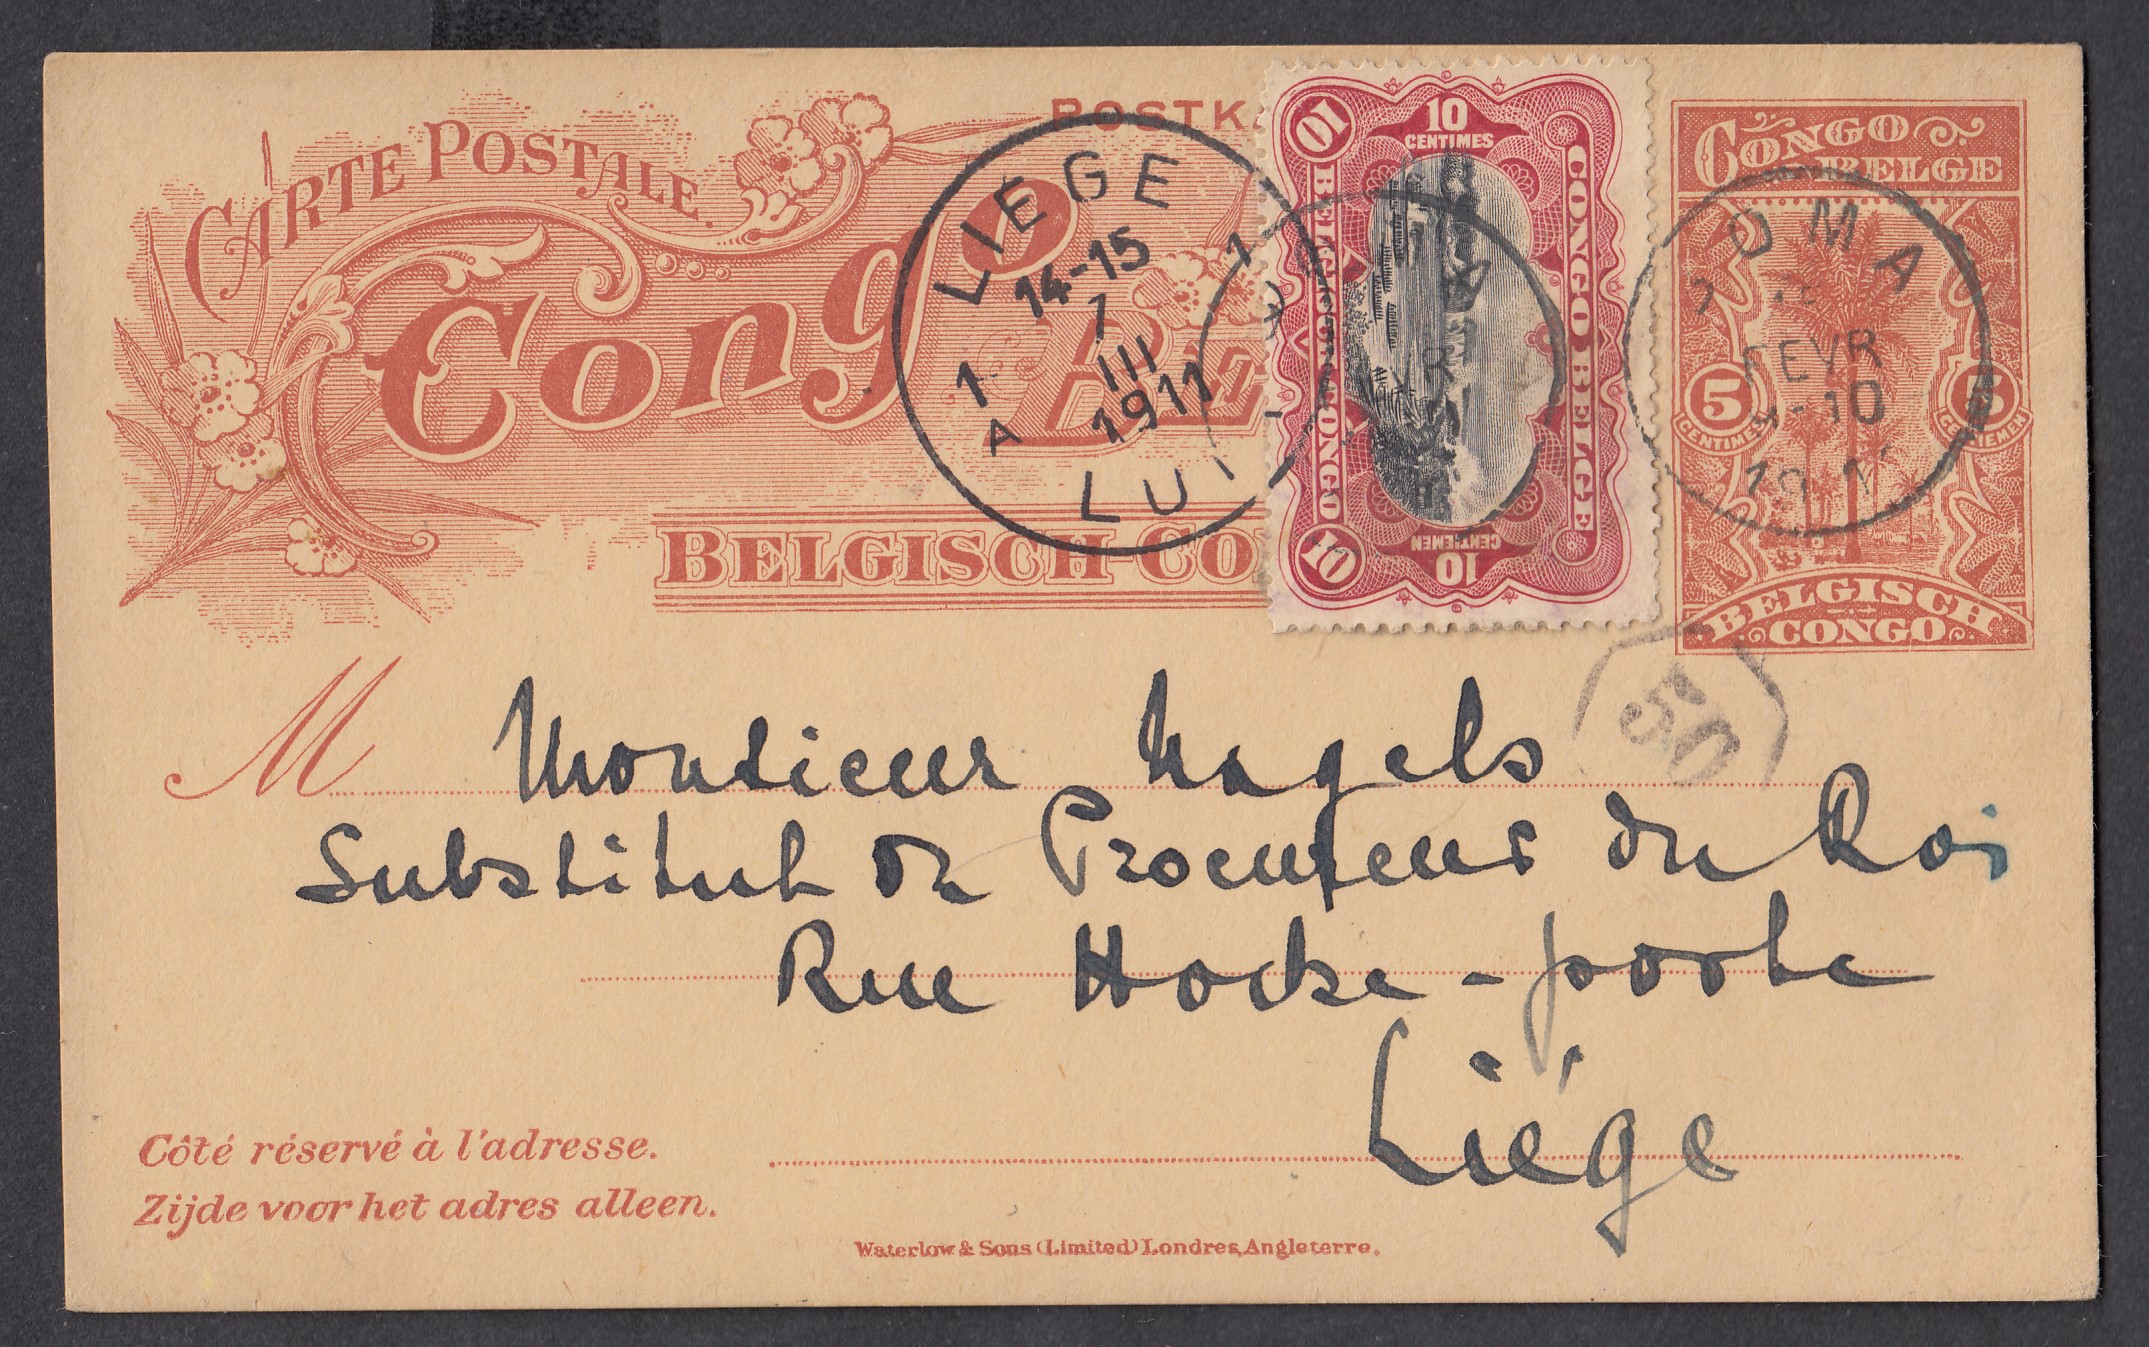 CARTE POSTALE.
POSTK
Congo
BE
BELGISCH-CO
LIEGE
14-15
7
III
1911
1
A
1
LUI
10
CENTIMES
10
CONGO BELGE
BELGISCH-CONGO
10
CENTIEMEN
10
CONGO
BELGE
OMA
FEVR
9-10
5
CENTIMES
5
CENTIEMEN
BELGISCH
CONGO
50
M Monsieur Nagels
Substitut du Procureur du Roi
Rue Hocke-poorte
Liége
Côté réservé à l'adresse.
Zijde voor het adres alleen.
Waterlow & Sons (Limited) Londres, Angleterre.